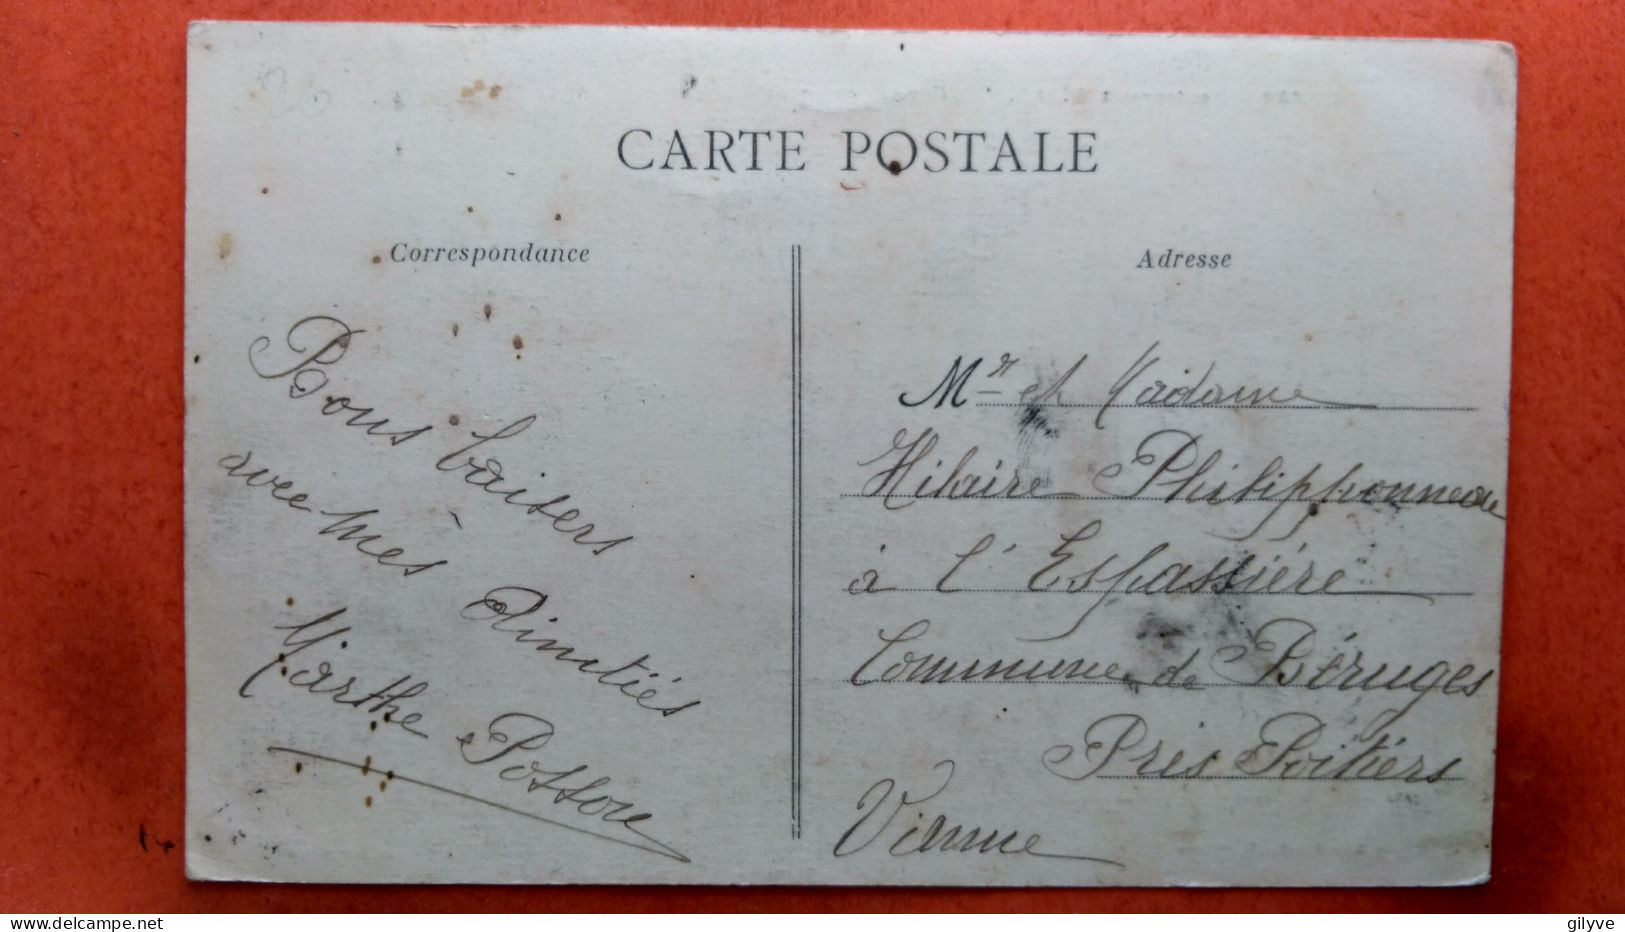 CARTE POSTALE
Correspondance
Bons baisers
avec mès Amitiés
Marthe Posson
Adresse
Mr et Madame
Hilaire Philipponneau
à l'Espassière
Commune de Béruges
Près Poitiers
Vienne
gilyve